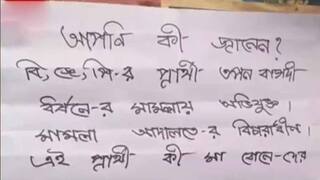 আপনি কী জানেন?
বি, জে, পি-র প্রার্থী তপন বাগদী
ধর্ষনে-র মামলায় অভিযুক্ত।
মামলা আদালতে-র বিচারাধীন।
এই প্রার্থী কী মা বোনে-দের